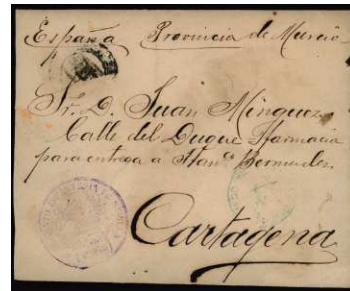 España Provincia de Murcia
Sr. D. Juan Minguez
Calle del Duque Farmacia
para entrega a Bermudez
Cartagena